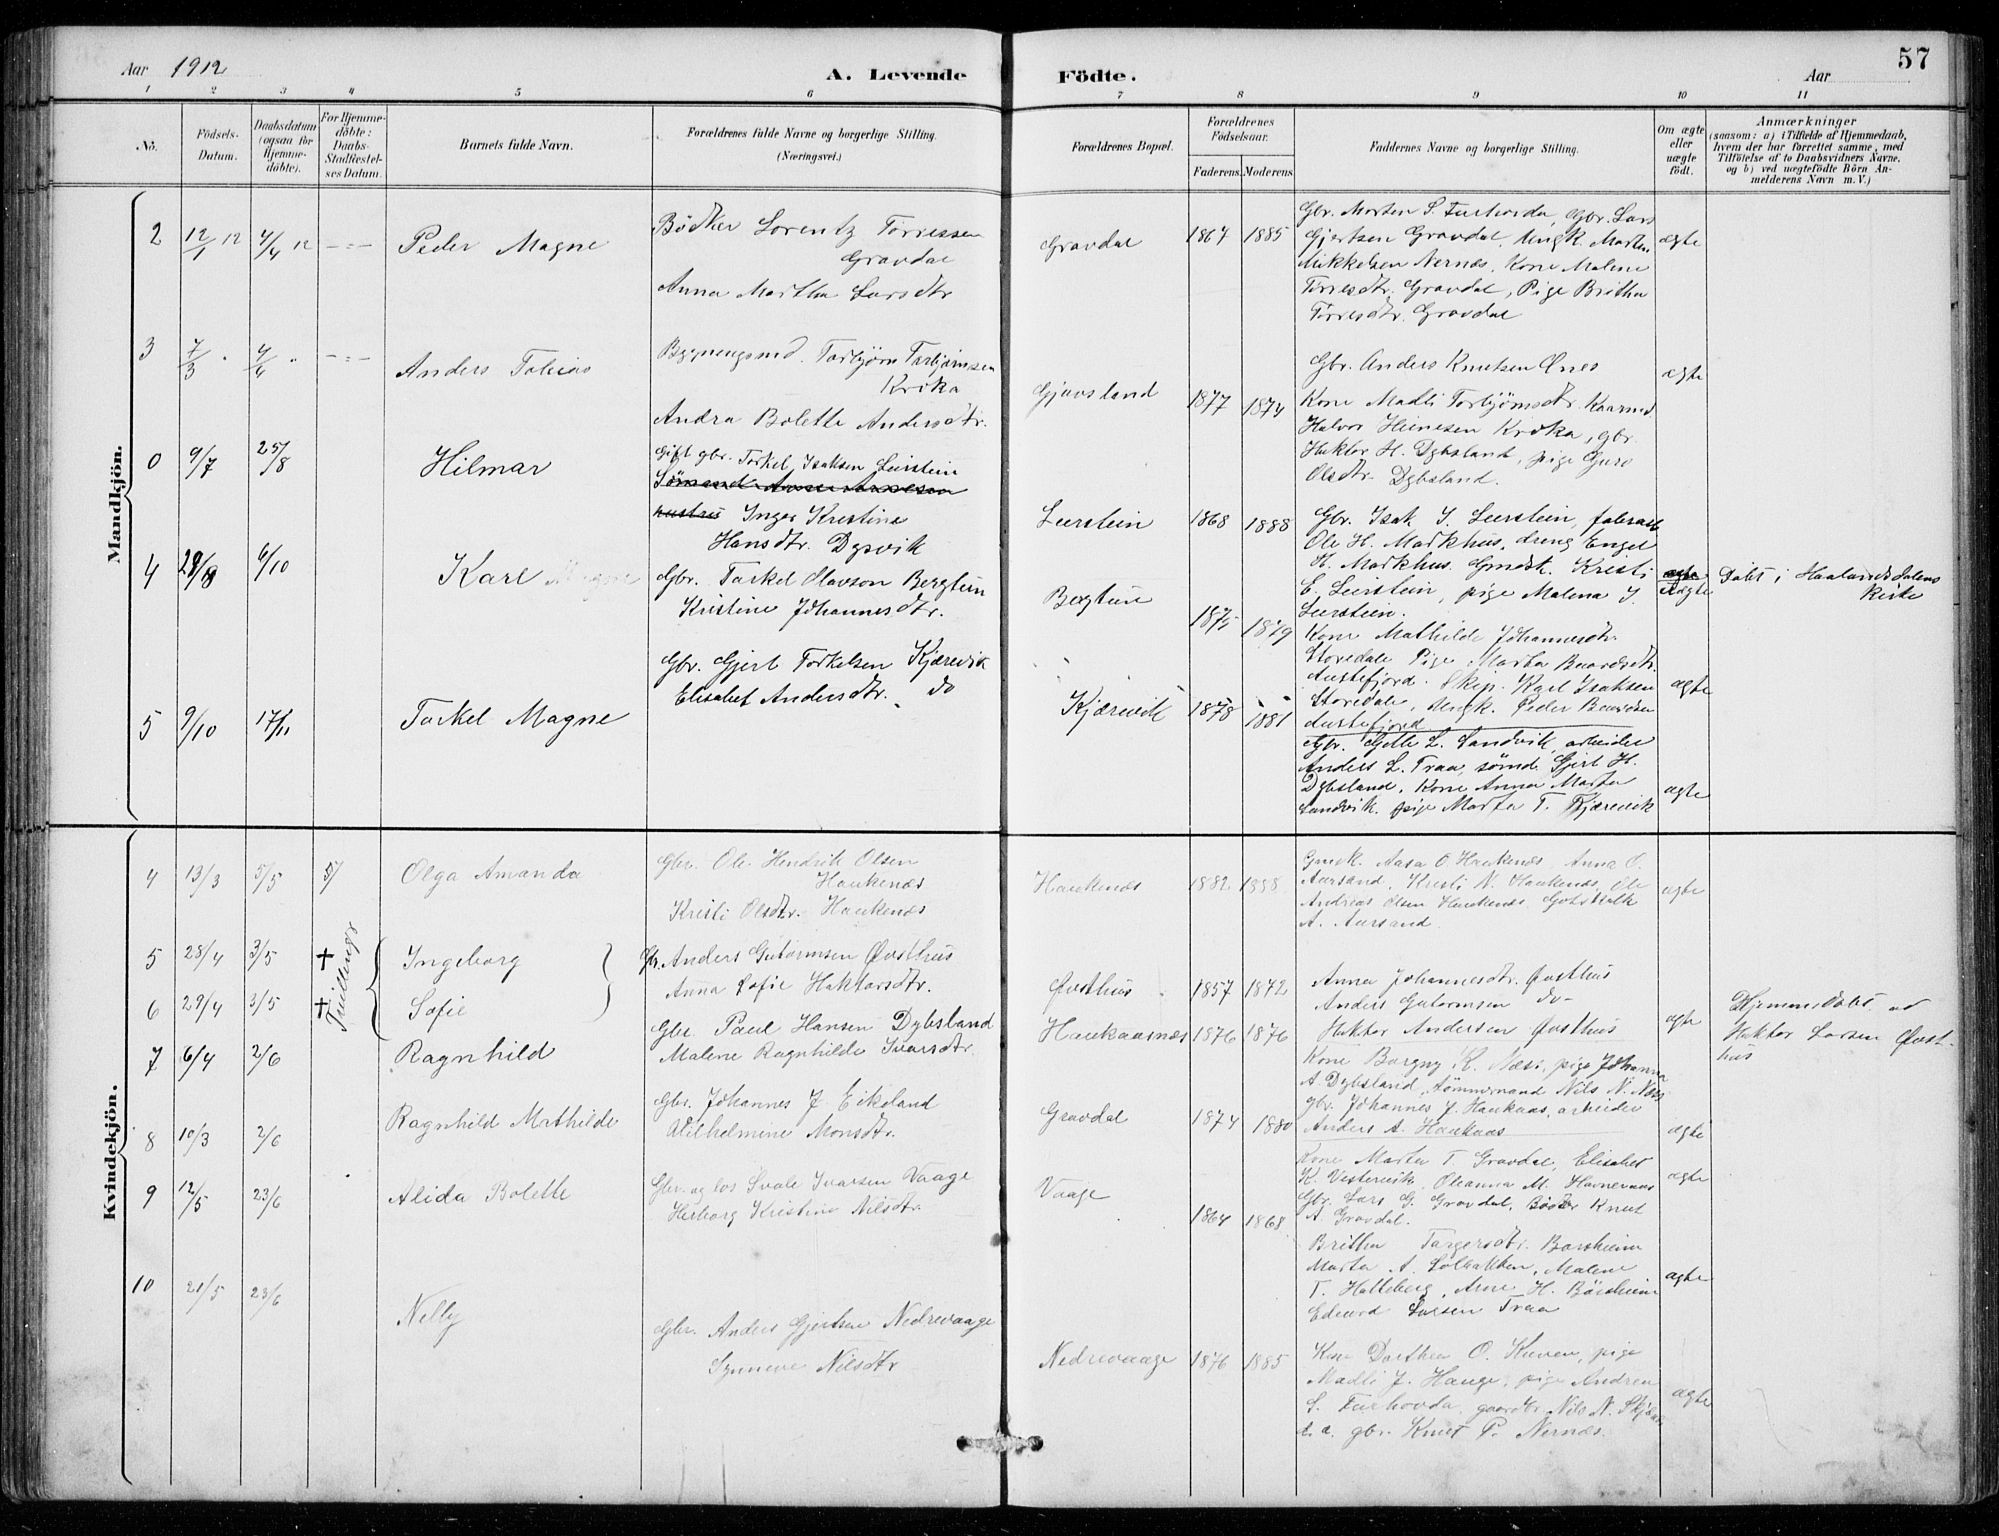 57
Aar 1912
A. Levende Födte.
Aar
1 2 3 4 5 6 7 8 9 10 11
No.
Födsels-
Datum.
Daabsdatum
(ogsaa for
Hjemme-
döbte).
For Hjemme-
döbte:
Daabs-
Stadfæstel-
ses Datum.
Barnets fulde Navn.
Forældrenes fulde Navne og borgerlige Stilling.
(Næringsvei.)
Forældrenes Bopæl.
Forældrenes
Födselsaar.
Faderens. Moderens.
Faddernes Navne og borgerlige Stilling.
Om ægte
eller
uægte
födt.
Anmærkninger
(saasom: a) i Tilfælde af Hjemmedaab,
hvem der har forrettet samme, med
Tilföielse af to Daabsvidners Navne,
og b) ved uægtefödte Börn An-
melderens Navn m. V.)
Mandkjön.
2 12/1 12 4/4 12 -"-
Peder Magne
Bødker Lorentz Torressen
Gravdal
Anna Martha Larsdtr
Gravdal
1867 1885
Gbr. Morten S. Furhovda, Gbr. Lars
Gjertsen Gravdal, Ungk. Morten
Mikkelsen Nernæs, Kone Malene
Torresdtr. Gravdal, Pige Britha
Torresdtr. Gravdal
ægte
3 7/3 " 4/4 " -"-
Anders Tobias
Bygningsmd. Torbjørn Torbjørnsen
Kroka
Andra Bolette Andersdtr.
Gjøvsland
1877 1874
Gbr. Anders Knutsen Ones
Kone Madli Torbjørnsdtr. Kaarevd
Halvor Heinesen Kroka, gbr.
Haktor H. Dybsland, pige Guro
Olsdtr. Dybsland.
ægte
0 9/7 25/8
Hilmar
Gift gbr. Torkel Isaksen Leirstein
hustru Inger Kristine
Hansdtr. Dysvik
Leerstein
1868 1888
Gbr. Isak I. Leerstein,
Ole H. Markhus, dreng Engel
H. Markhus. Gmdsk. Kristi
E. Leirstein, pige Malena I.
Leerstein.
Uægte
Døbt i Haalandsdalens
Kirke
4 29/8 6/10
Karl Magne
Gbr. Torkel Olavson Bergtun
Kristine Johannesdtr.
Bergtun
1875 1879
Kone Mathilde Johannesdtr.
Storedale Pige Marta Baardsdtr.
Austefjord. Skip. Karl Isaksen
Storedale, Ungk. Peder Baardsen
Austefjord
ægte
5 9/10 17/11
Torkel Magne
Gbr. Gjert Torkelsen Kjærevik
Elisabet Andersdtr. do
Kjærevik
1878 1881
Gbr. Gjette L. Sandvik, arbeider
Anders L. Traa, sømd. Gjert H.
Dybsland, Kone Anna Marta
Sandvik, pige Marta T. Kjærevik
ægte
Kvindekjön.
4 13/3 5/5 5/
Olga Amanda
Gbr. Ole Hendrik Olsen
Haukenæs
Kristi Olsdtr. Haukenæs
Haukenæs
1882 1888
Gmsk. Aasa O Haukenæs, Anna O.
Aarsand, Kristi N. Haukenæs, Ole
Andreas Olsen Haukenæs, Gotskalk
A. Aarsand.
ægte
5 28/4 3/5 †
Ingeborg
6 29/4 3/5 †
Sofie
Tvillinger
Gbr. Anders Gutormsen Øvsthus
Anna Sofie Haktorsdtr.
Øvsthus
1857 1872
Anna Johannesdtr. Øvsthus
Anders Gutormsen do-
Haktor Andersen Øvsthus
ægte
Hjemmedøbt ved
Haktor Larsen Øvst-
hus
7 6/4 2/6
Ragnhild
Gbr. Paul Hansen Dybsland
Malene Ragnhilde Ivarsdtr.
Haukaasnæs
1876 1876
Kone Borgny K. Næss, pige Johanna
A. Dybsland, Tømmermand Nils N. Næss
gbr. Johannes J. Haukaas, arbeider
Anders A. Haukaas
ægte
8 10/3 2/6
Ragnhild Mathilde
Gbr. Johannes J. Eikeland
Wilhelmine Monsdtr.
Gravdal
1874 1880
Kone Marta T. Gravdal, Elisabet
K. Vestervik, Oleanna M. Havneraas
Gbr. Lars G. Gravdal, Bødker Knut
A. Gravdal.
ægte
9 12/5 23/6
Alida Bolette
Gbr. og los Svale Ivarsen Vaage
Herborg Kristine Nilsdtr.
Vaage
1864 1868
Britha Torgersdtr. Borsheim
Marta A. Solbakken, Malene
T. Hatteberg, Arne H. Børsheim
Edvard Larsen Traa
ægte
10 21/5 23/6
Nelly
Gbr. Anders Gjertsen Nedrevaage
Synneve Nilsdtr
Nedrevaage
1876 1885
Kone Dorthea O. Kuven, pige
Madli J. Hauge, pige Andrea
S. Furhovda, gaardbr. Nils N.
gbr. Knut P. Nernæs.
ægte